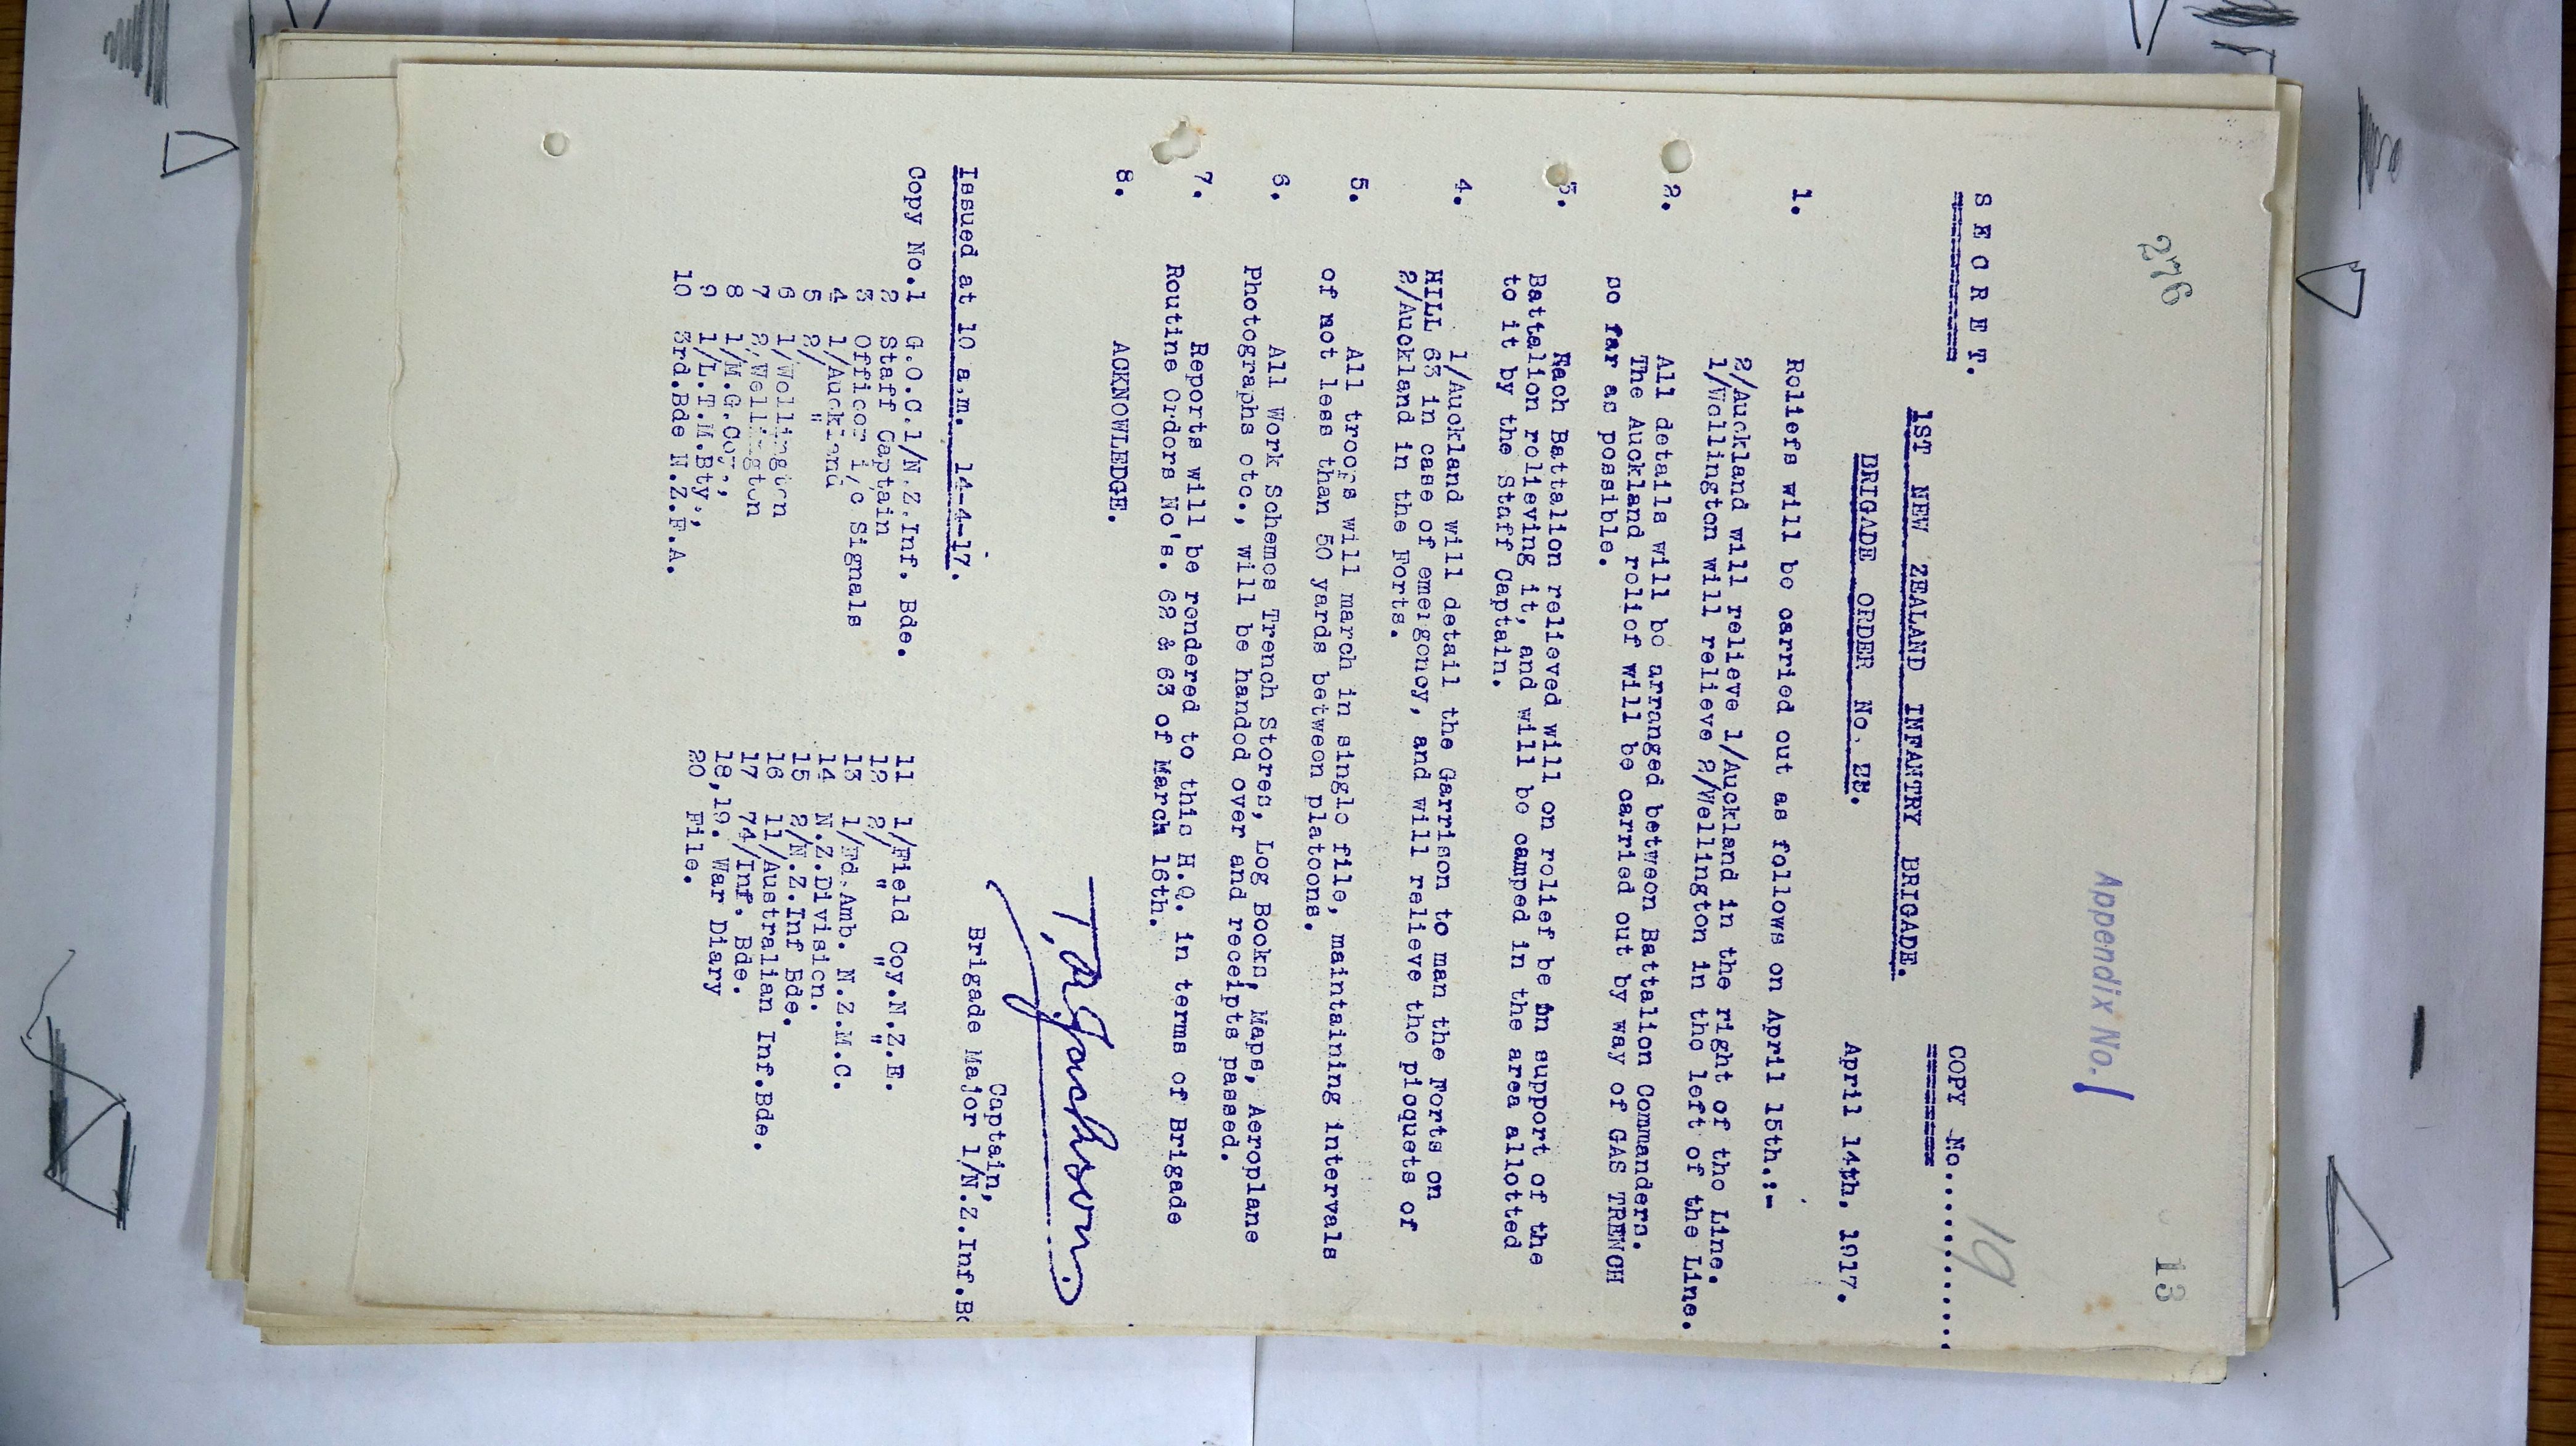 276
13
Appendix No. 1
S E C R E T.
COPY No.............
19
1ST NEW ZEALAND INFANTRY BRIGADE.
BRIGADE ORDER No.
April 14th, 1917.
1. Reliefs will be carried out as follows on April 15th.:-
2/Auckland will relieve 1/Auckland in the right of the Line.
1/Wellington will relieve 2/Wellington in the left of the Line.
2. All details will be arranged between Battalion Commanders.
The Auckland relief will be carried out by way of GAS TRENCH
so far as possible.
3. Each Battalion relieved will on relief be in support of the
Battalion relieving it, and will be camped in the area allotted
to it by the Staff Captain.
4. 1/Auckland will detail the Garrison to man the Forts on
HILL 63 in case of emergency, and will relieve the picquets of
2/Auckland in the Forts.
5. All troops will march in single file, maintaining intervals
of not less than 50 yards between platoons.
6. All Work Schemes Trench Stores, Log Books, Maps, Aeroplane
Photographs etc., will be handed over and receipts passed.
7. Reports will be rendered to this H.Q. in terms of Brigade
Routine Orders No's. 62 & 63 of March 16th.
8. ACKNOWLEDGE.
Captain,
Brigade Major 1/N.Z.Inf.Bd
Issued at 10 a.m. 14-4-17.
Copy No.1 G.O.C.1/N.Z.Inf. Bde.
2 Staff Captain
3 Officer i/c Signals
4 1/Auckland
5 2/ "
6 1/Wellington
7 2/Wellington
8 1/M.G.Coy.,
9 1/L.T.M.Bty.,
10 3rd.Bde N.Z.F.A.
11 1/Field Coy.N.Z.E.
12 2/ " "
13 1/Fd.Amb. N.Z.M.C.
14 N.Z.Division.
15 2/N.Z.Inf Bde.
16 11/Australian Inf.Bde.
17 74/Inf. Bde.
18,19. War Diary
20 File.